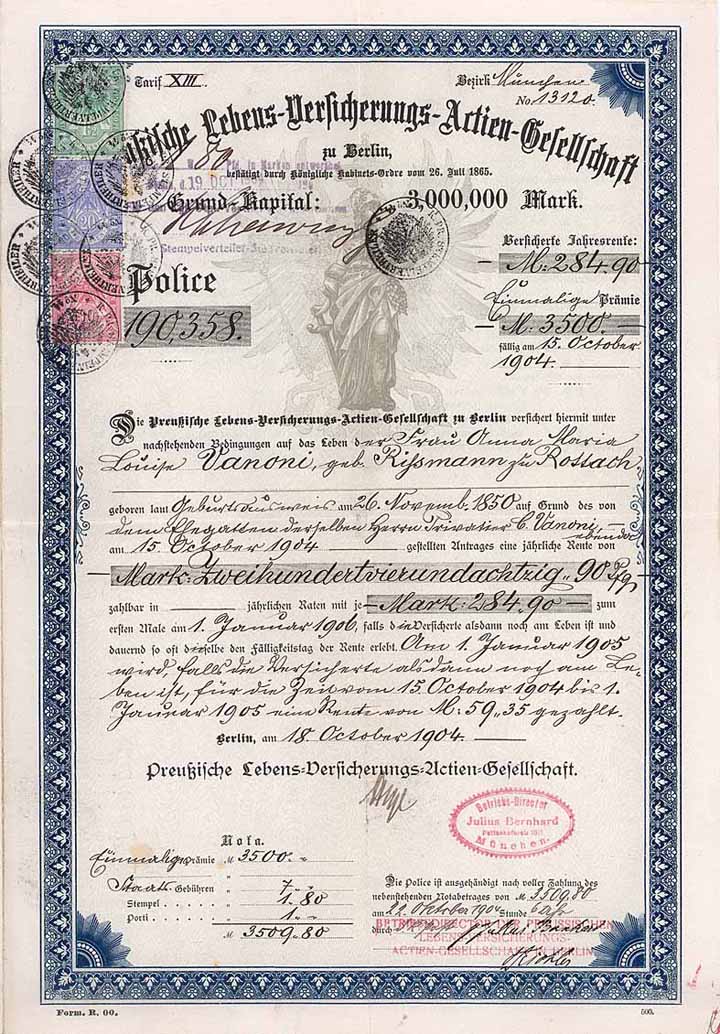 Tarif XIII.
Bezirk München
No. 13120.
ßische Lebens-Versicherungs-Actien-Gesellschaft
zu Berlin,
bestätigt durch Königliche Kabinets-Ordre vom 26. Juli 1865.
19 OCT
Grund-Kapital: 3,000,000 Mark.
Stempelverteiler
Versicherte Jahresrente:
M: 284,90
Police
190,358.
Einmalige Prämie
M. 3500.
fällig am 15. October
1904.
Die Preußische Lebens-Versicherungs-Actien-Gesellschaft zu Berlin versichert hiermit unter
nachstehenden Bedingungen auf das Leben der Frau Anna Maria
Louise Vanoni, geb. Rissmann zu Rottach
geboren laut Geburtsausweis am 26. Novemb. 1850 auf Grund des von
dem Ehegatten derselben Herrn Privatier C. Vanoni, ebenda
am 15. October 1904 gestellten Antrages eine jährliche Rente von
Mark: Zweihundertvierundachtzig „ 90 Pfg
zahlbar in jährlichen Raten mit je Mark: 284,90 zum
ersten Male am 1. Januar 1906, falls die Versicherte alsdann noch am Leben ist und
dauernd so oft dieselbe den Fälligkeitstag der Rente erlebt. Am 1. Januar 1905
wird, falls die Versicherte alsdann noch am Le-
ben ist, für die Zeit vom 15. October 1904 bis 1.
Januar 1905 eine Rente von M: 59,35 gezahlt.
Berlin, am 18. October 1904.
Preußische Lebens-Versicherungs-Actien-Gesellschaft.
Betriebs-Director
Julius Bernhard
München.
Nota.
Einmalige Prämie M 3500. „
Staats-Gebühren „ 7 „
Stempel „ 1.80
Porti „ 1 „
M 3509.80
Die Police ist ausgehändigt nach voller Zahlung des
nebenstehenden Notabetrages von M 3509.80
am 22. Oktober 1904 Stunde
durch
BETRIEBSDIRECTOR DER PREUSSISCHEN
LEBENSVERSICHERUNGS-
ACTIEN-GESELLSCHAFT IN BERLIN
Form. R. 00.
500.